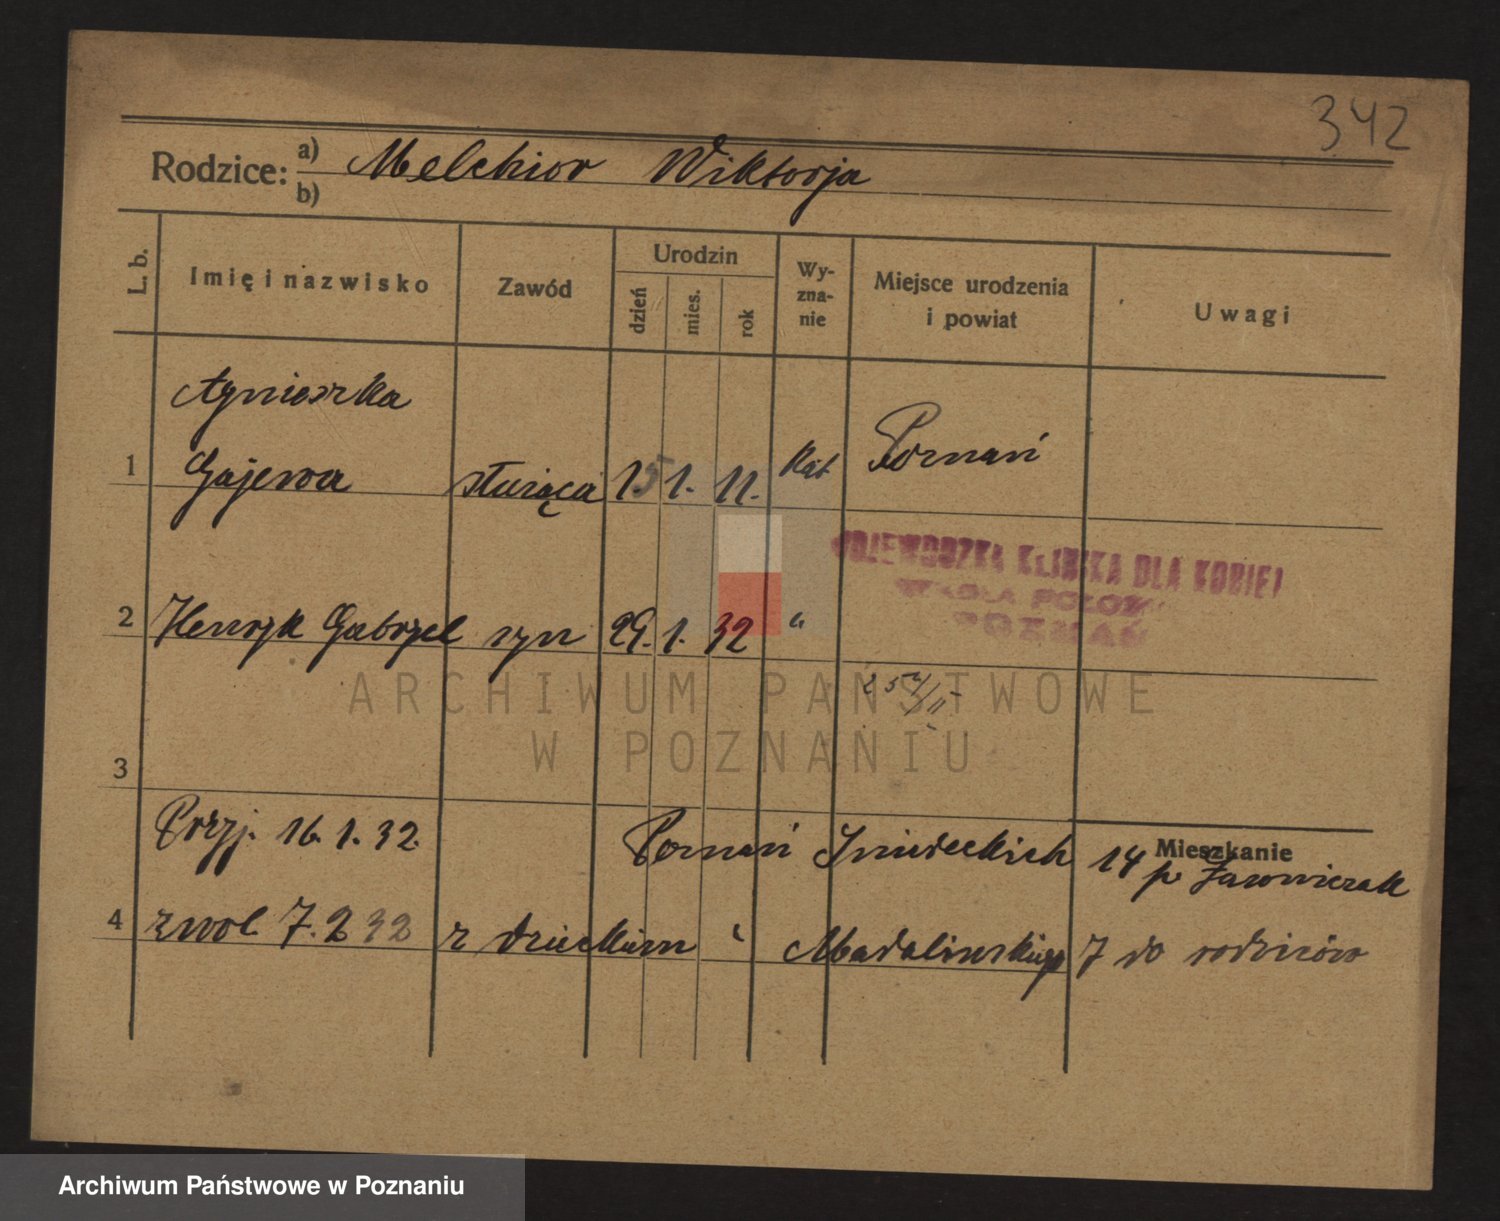 342
Rodzice: a) Melchior Wiktorja
b)
L. b.
Imię i nazwisko
Zawód
Urodzin
dzień
mies.
rok
Wy-
zna-
nie
Miejsce urodzenia
i powiat
Uwagi
Agnieszka
1 Gajewa służąca 15 1. 11. kat Poznań
WOJEWÓDZKA KLINIKA DLA KOBIET
POZNAŃ
2 Henryk Gabryel syn 29. 1. 32 "
ARCHIWUM PAŃSTWOWE
W POZNANIU
3
Przyj. 16.1.32. Poznań Śniadeckich 14 Mieszkanie
p.
4 zwol. 7.2 32 z dzieckiem Madalińskiego 7 do rodziców
Archiwum Państwowe w Poznaniu